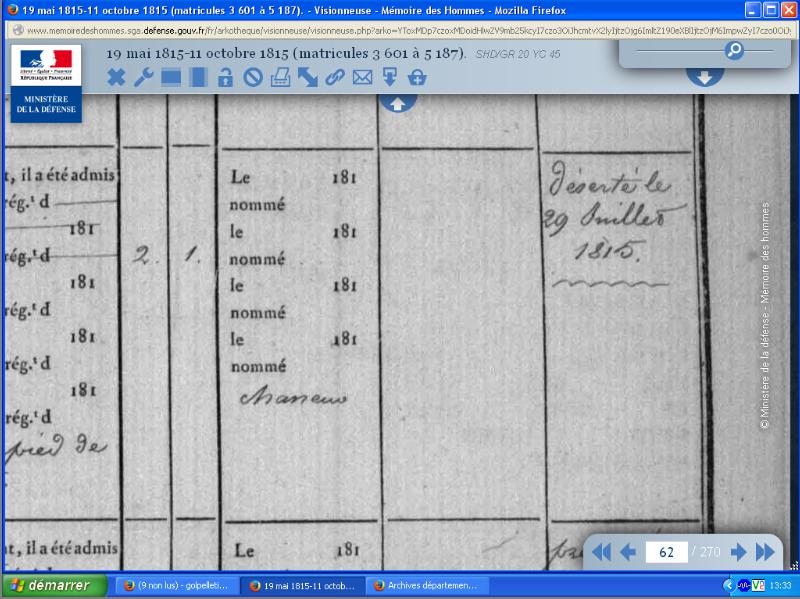 19 mai 1815-11 octobre 1815 (matricules 3 601 à 5 187). - Visionneuse - Mémoire des Hommes - Mozilla Firefox
19 mai 1815-11 octobre 1815 (matricules 3 601 à 5 187). SHD/GR 20 YC 45
Liberté • Égalité • Fraternité
RÉPUBLIQUE FRANÇAISE
MINISTÈRE
DE LA DÉFENSE
t, il a été admis
rég.t d
181
rég.t d
181
rég.t d
181
rég.t d
181
rég.t d
pied de
2. 1.
Le 181
nommé
le 181
nommé
le 181
nommé
le 181
nommé
chasseur
déserté le
29 Juillet
1815.
© Ministère de la défense - Mémoire des hommes
nt, il a été admis
Le 181
62 / 270
démarrer
(9 non lus) - golpelleti...
19 mai 1815-11 octob...
Archives départemen...
13:33